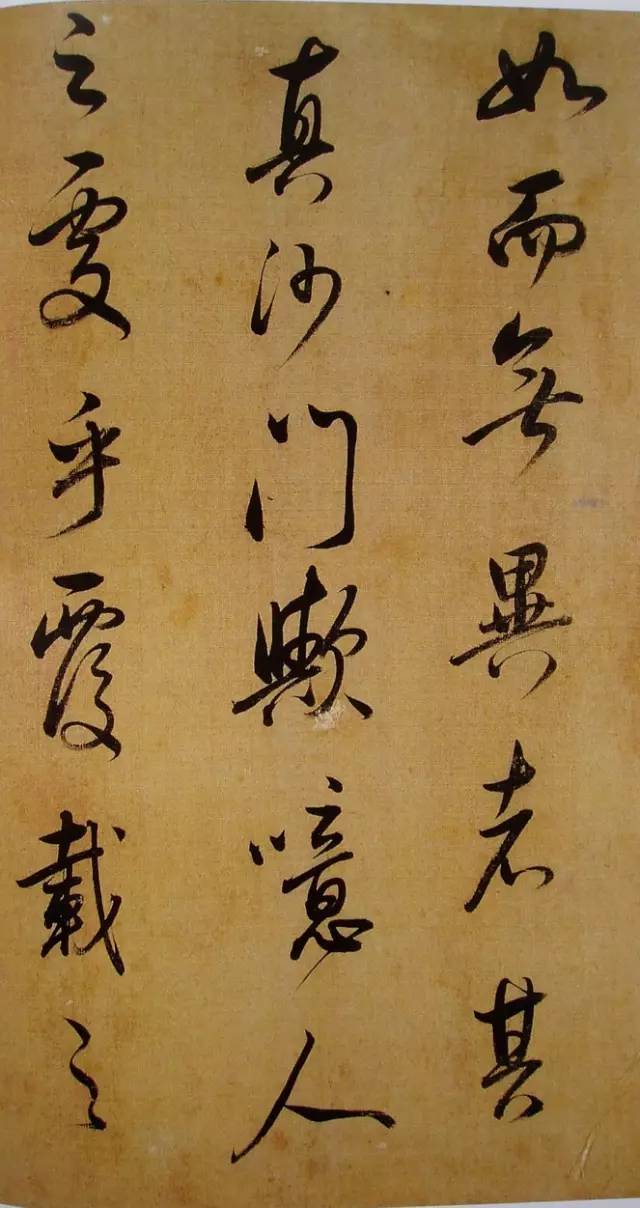 如而無異者其
真沙門歟噫人
之處乎覆載之